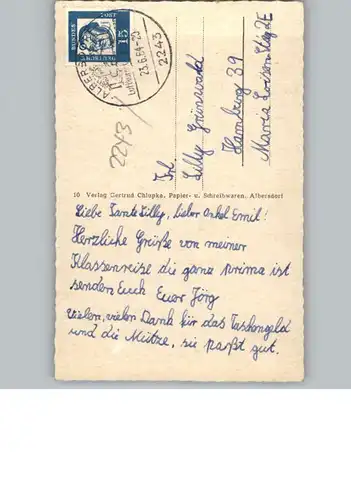 DEUTSCHE
BUNDESPOST
15
ALBERSDORF
23.6.64-20
2243
2243
Frl.
Lilly Grünwald
Hamburg 39
Maria Louisen Stieg 2E
10 Verlag Gertrud Chlupka, Papier- u. Schreibwaren, Albersdorf
Liebe Tante Lilly, lieber Onkel Emil!
Herzliche Grüße von meiner
Klassenreise die ganz prima ist
senden Euch Euer Jörg
Vielen, vielen Dank für das Taschengeld
und die Mütze, sie paßt gut.